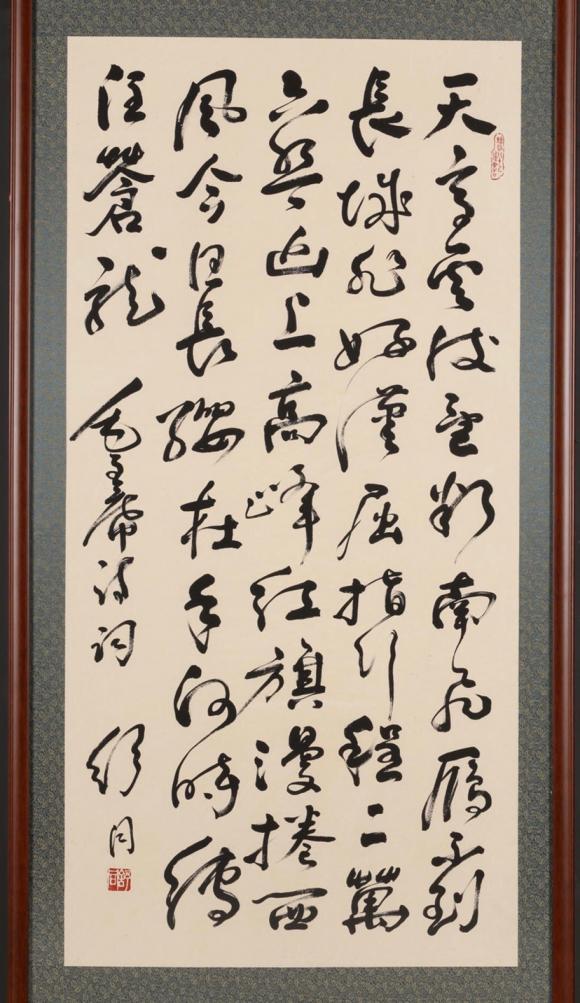 天高云淡望断南飞雁不到
長城非好漢屈指行程二萬
六盘山上高峰红旗漫捲西
風今日長纓在手何時縛
住蒼龍 毛主席诗词 舒同
舒同